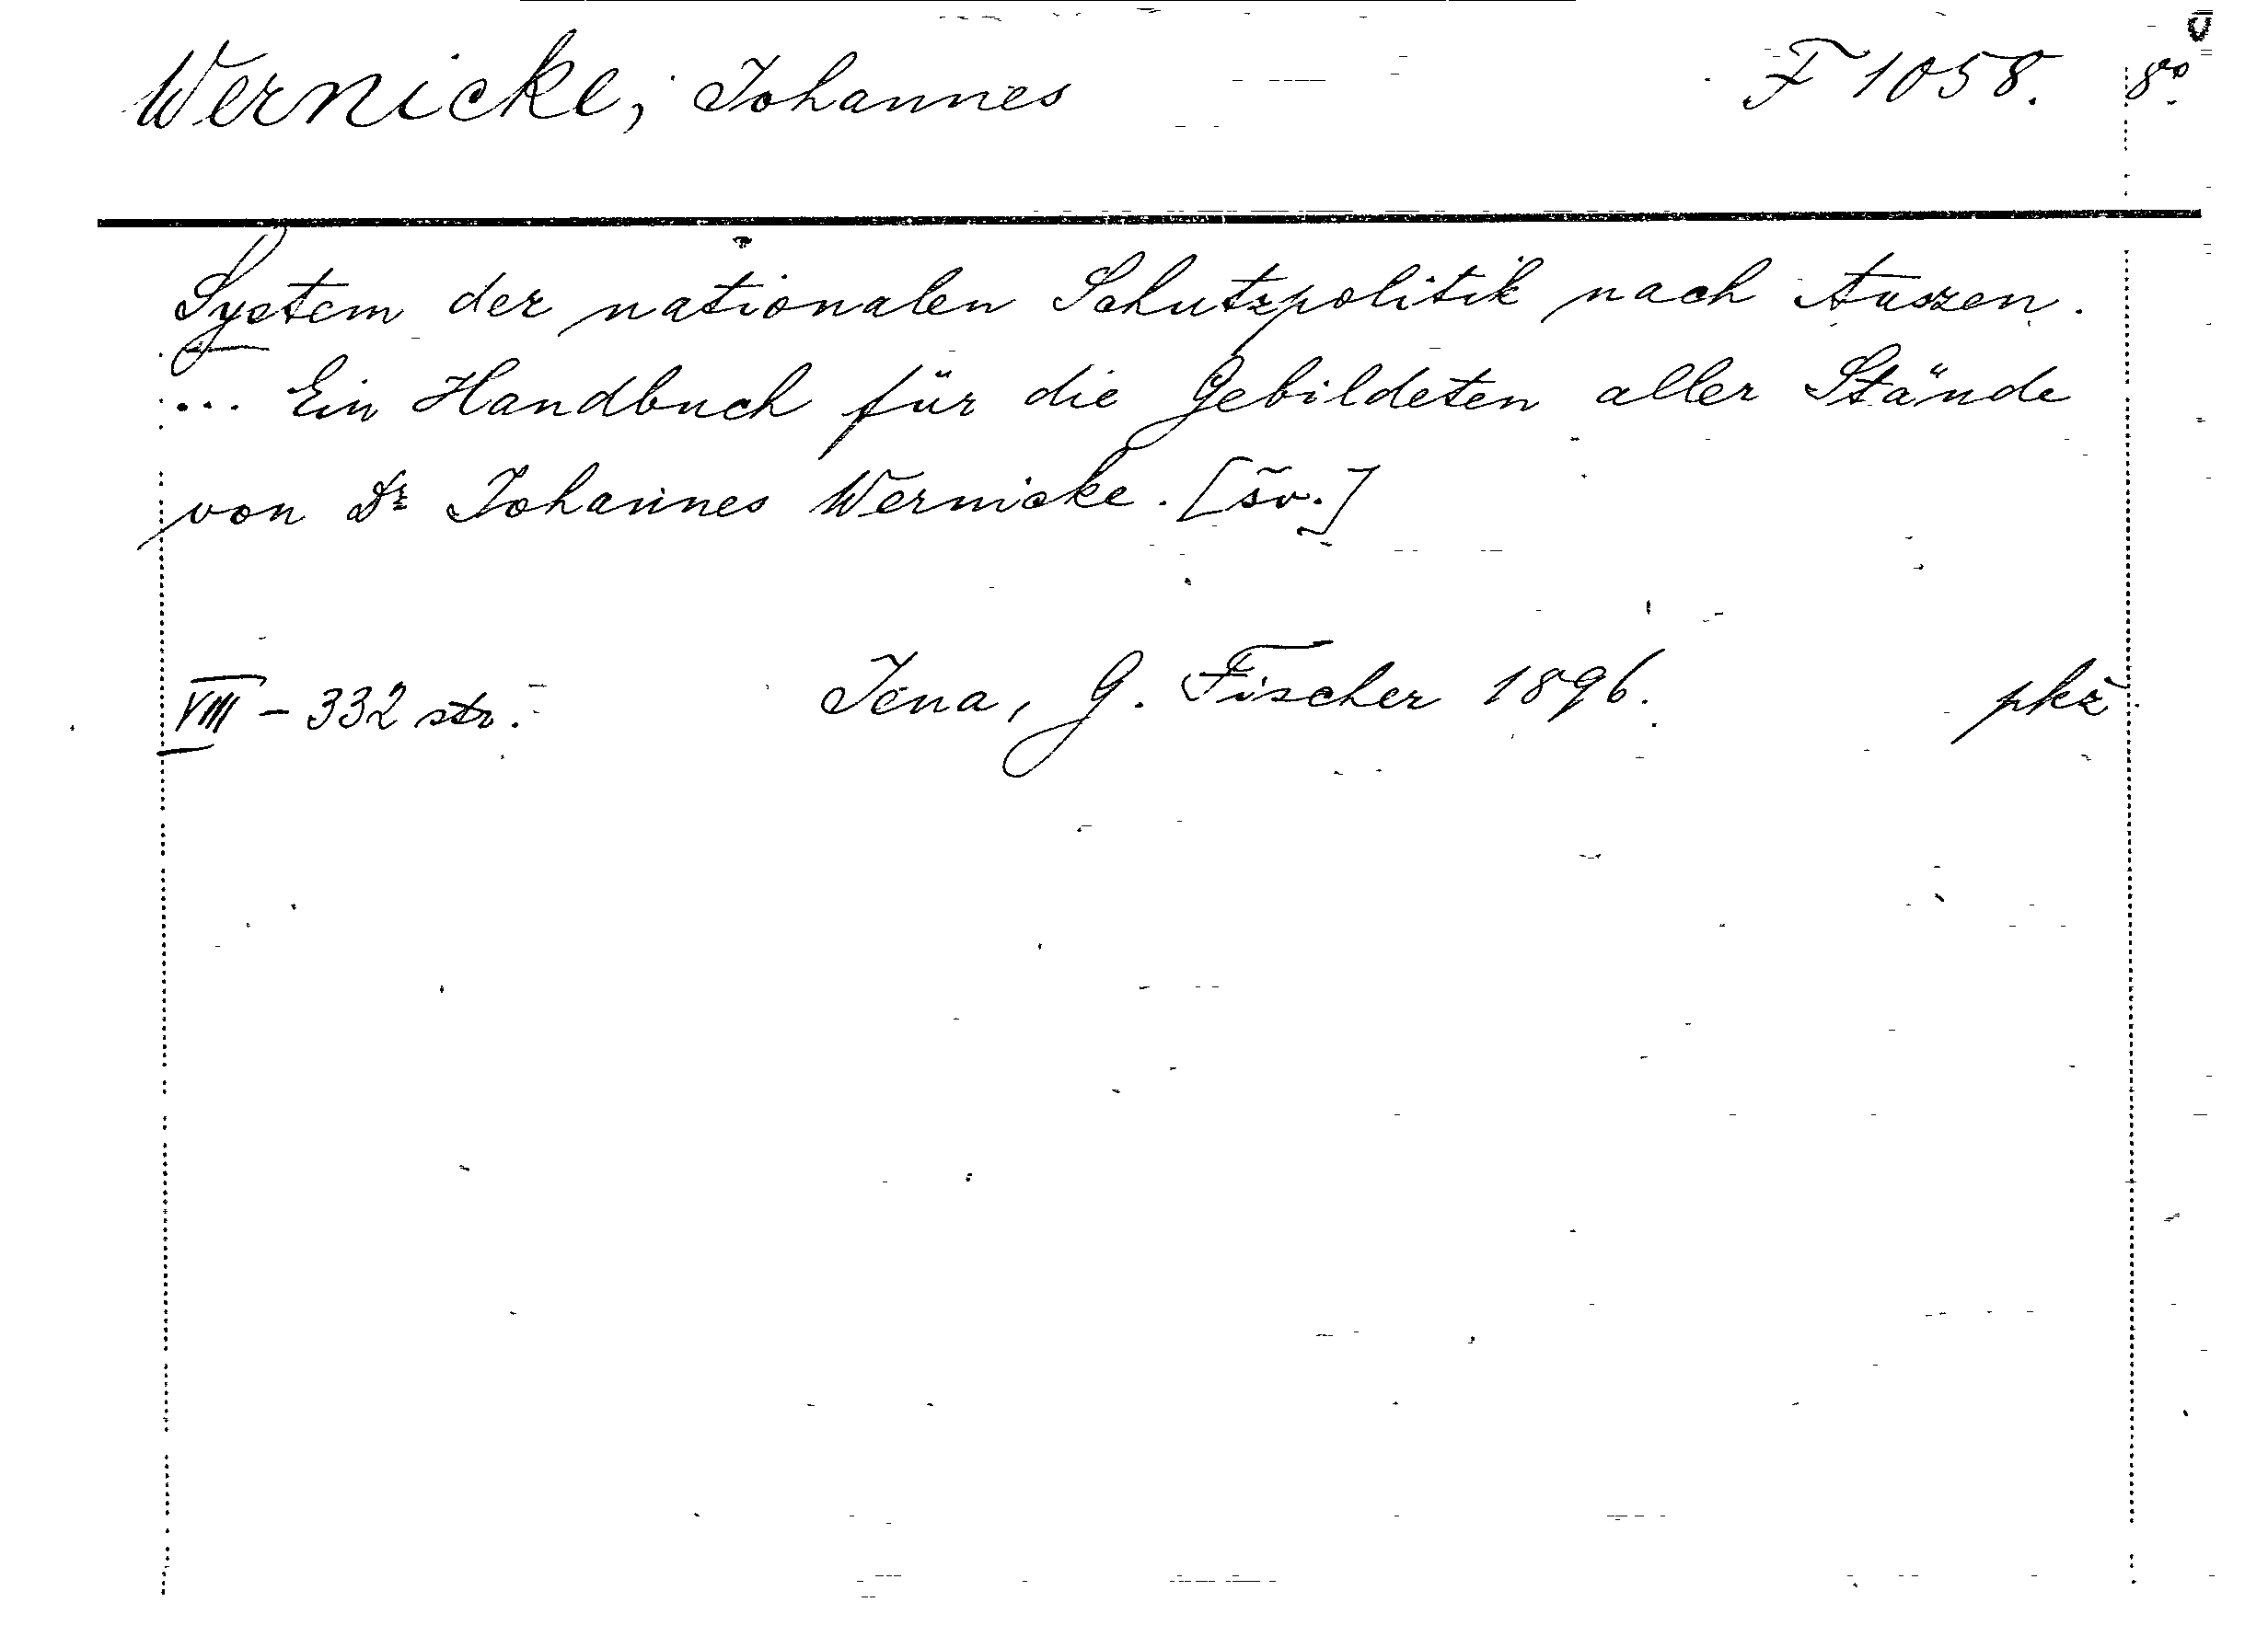 Wernicke, Johannes F 1058. 8⁰
System der nationalen Schutzpolitik nach Auszen.
... Ein Handbuch für die Gebildeten aller Stände
von Dr Johannes Wernicke. [šv.]
VIII - 332 str. Jena, G. Fischer 1896. pkž